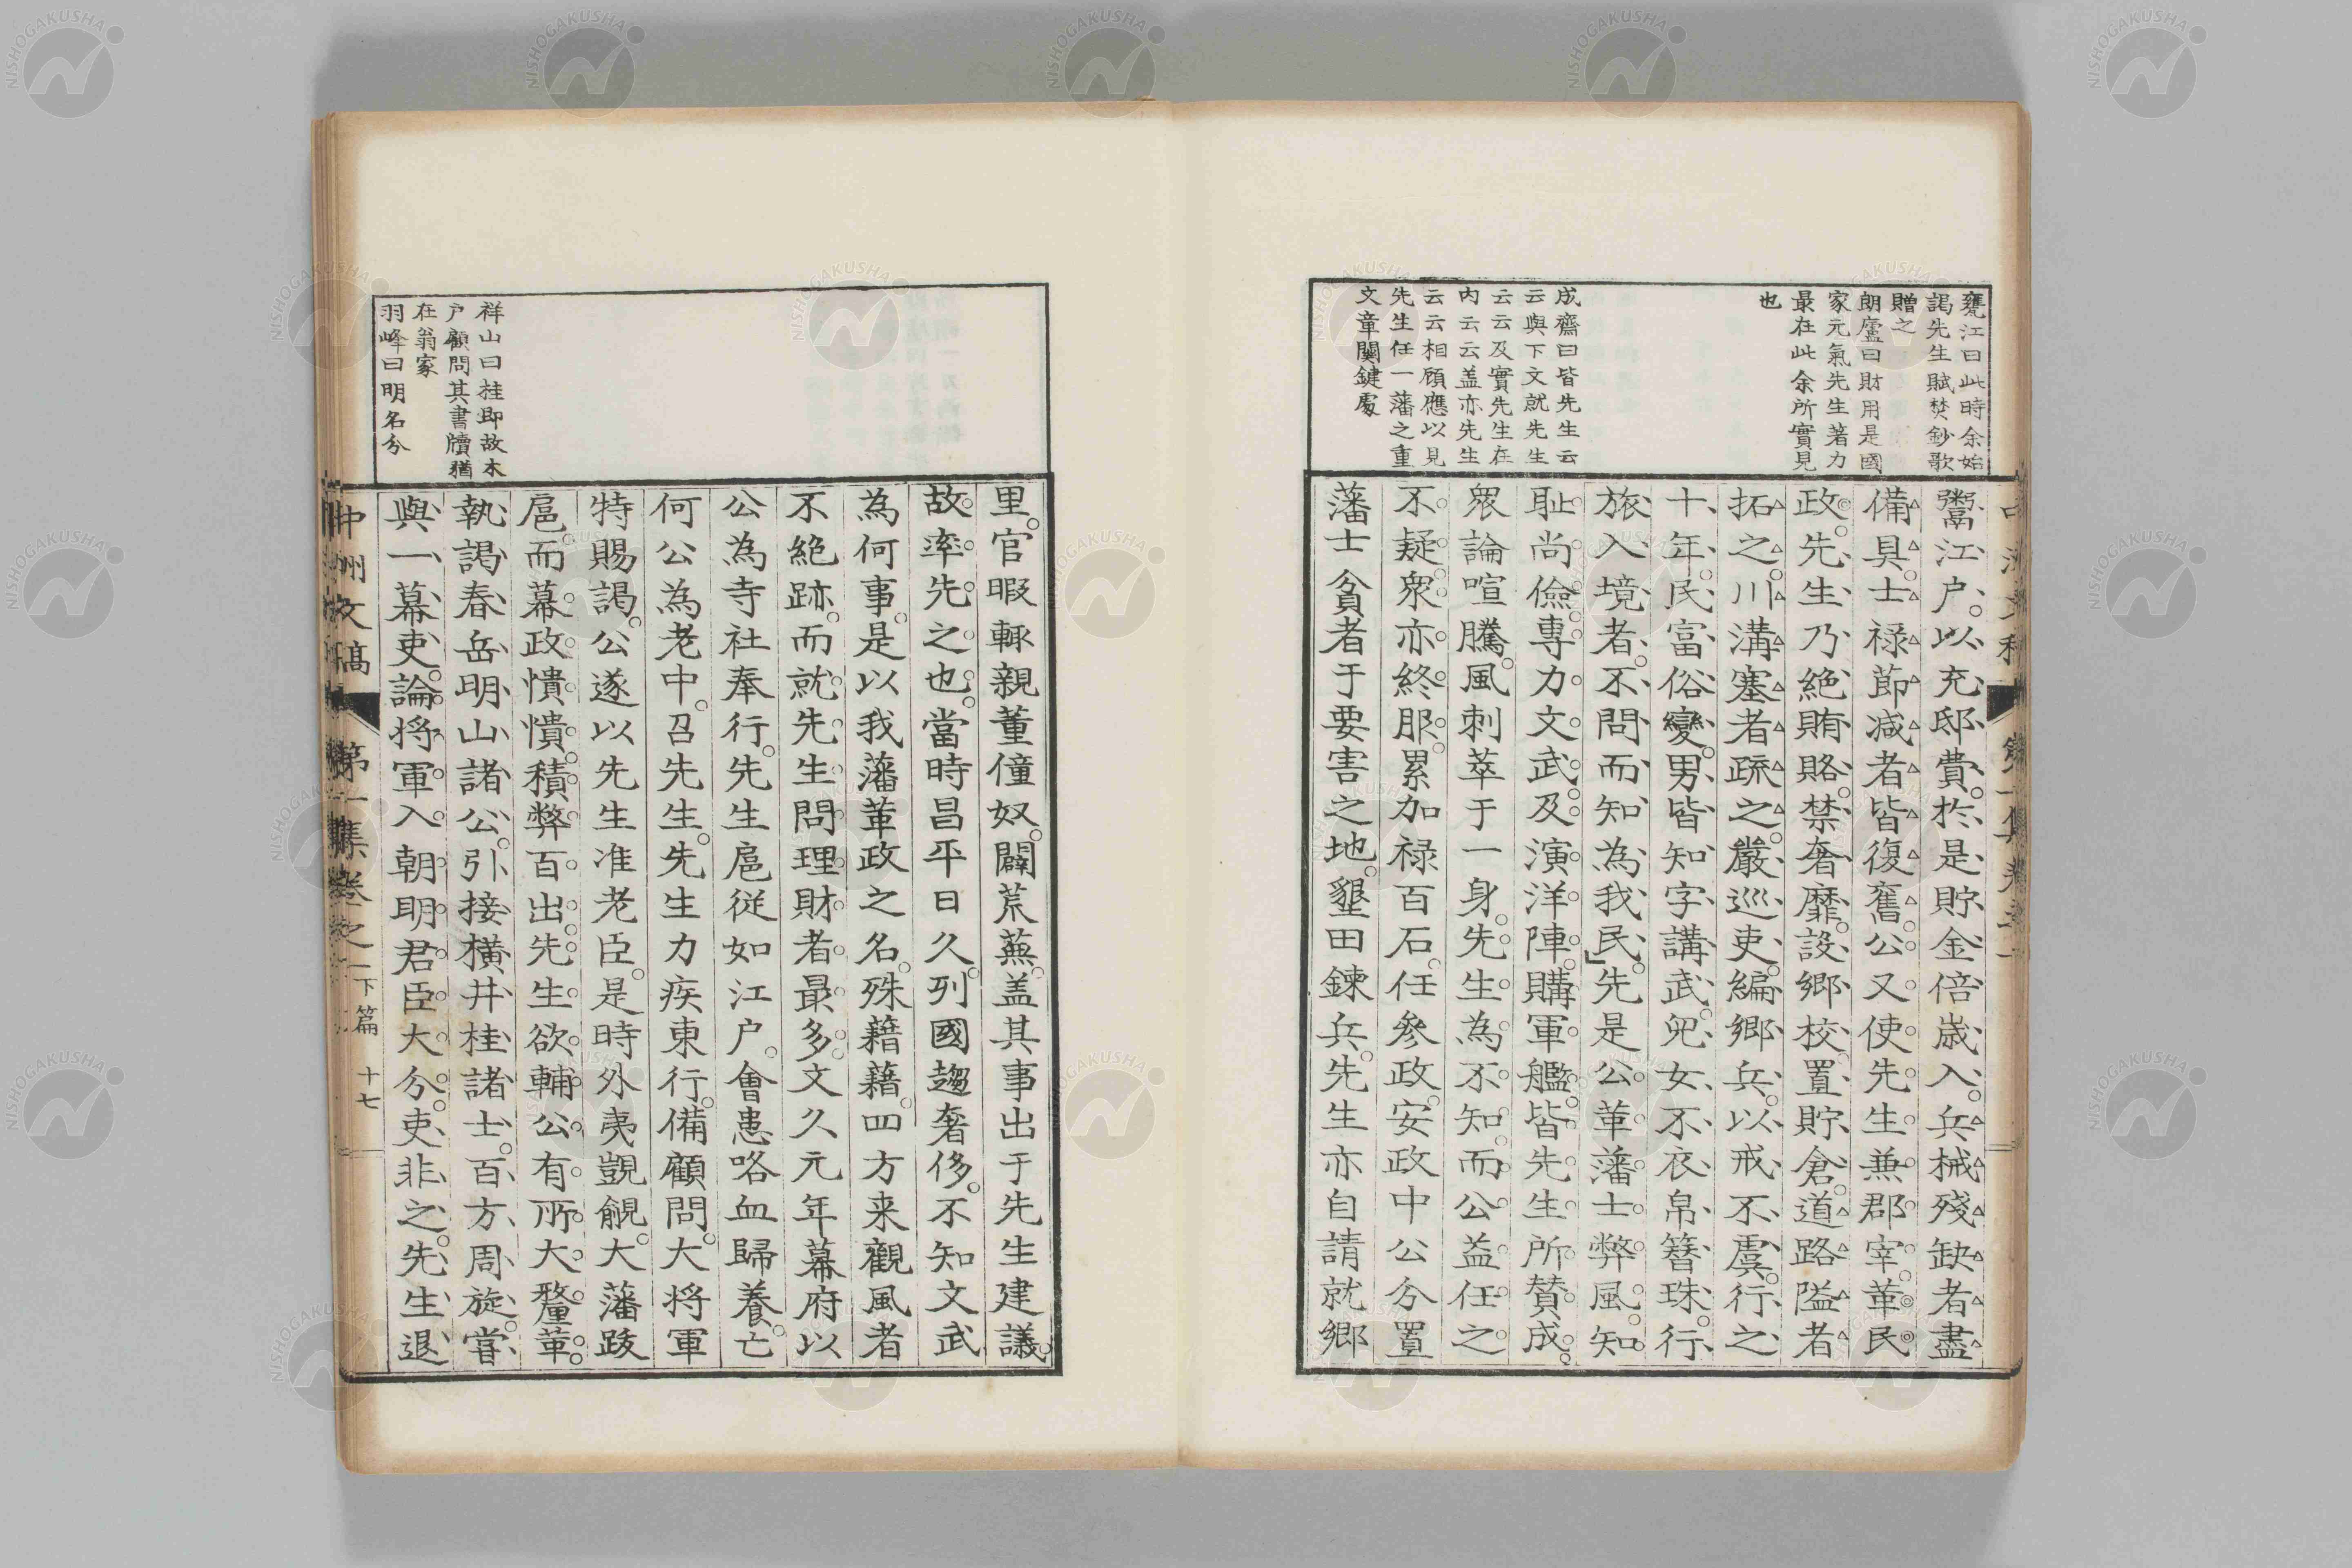 甕江曰此時余始
謁先生賦焚鈔歌
贈之
朗廬曰財用是國
家元氣先生著力
最在此余所實見
也
成齋曰皆先生云
云與下文就先生
云云及實先生在
内云云盖亦先生
云云相頋應以見
先生任一藩之重
文章關鍵處
鬻江户以充邸費於是貯金倍歳入兵械殘缺者盡
備具士禄節减者皆復舊公又使先生兼郡宰革民
政先生乃絶賄賂禁奢靡設鄉校置貯倉道路隘者
拓之川溝塞者疏之嚴巡吏編鄉兵以戒不虞行之
十年民富俗變男皆知字講武兒女不衣帛簪珠行
旅入境者不問而知為我民先是公革藩士弊風知
耻尚儉專力文武及演洋陣購軍艦皆先生所賛成
衆論喧騰風刺萃于一身先生為不知而公益任之
不疑衆亦終服累加禄百石任參政安政中公分置
藩士貧者于要害之地墾田鍊兵先生亦自請就鄉
里官暇輙親董僮奴闢荒蕪盖其事出于先生建議
故率先之也當時昌平日久列國趨奢侈不知文武
為何事是以我藩革政之名殊藉藉四方来觀風者
不絶跡而就先生問理財者最多文久元年幕府以
公為寺社奉行先生扈從如江户會患咯血歸養亡
何公為老中召先生先生力疾東行備顧問大将軍
特賜謁公遂以先生准老臣是時外夷覬覦大藩跋
扈而幕政憒憒積弊百出先生欲輔公有所大釐革
執謁春岳明山諸公引接橫井桂諸士百方周旋嘗
與一幕吏論将軍入朝明君臣大分吏非之先生退
祥山曰桂即故木
户顧問其書牘猶
在翁家
羽峰曰明名分
中洲文稿 第一集卷之一下篇 十七